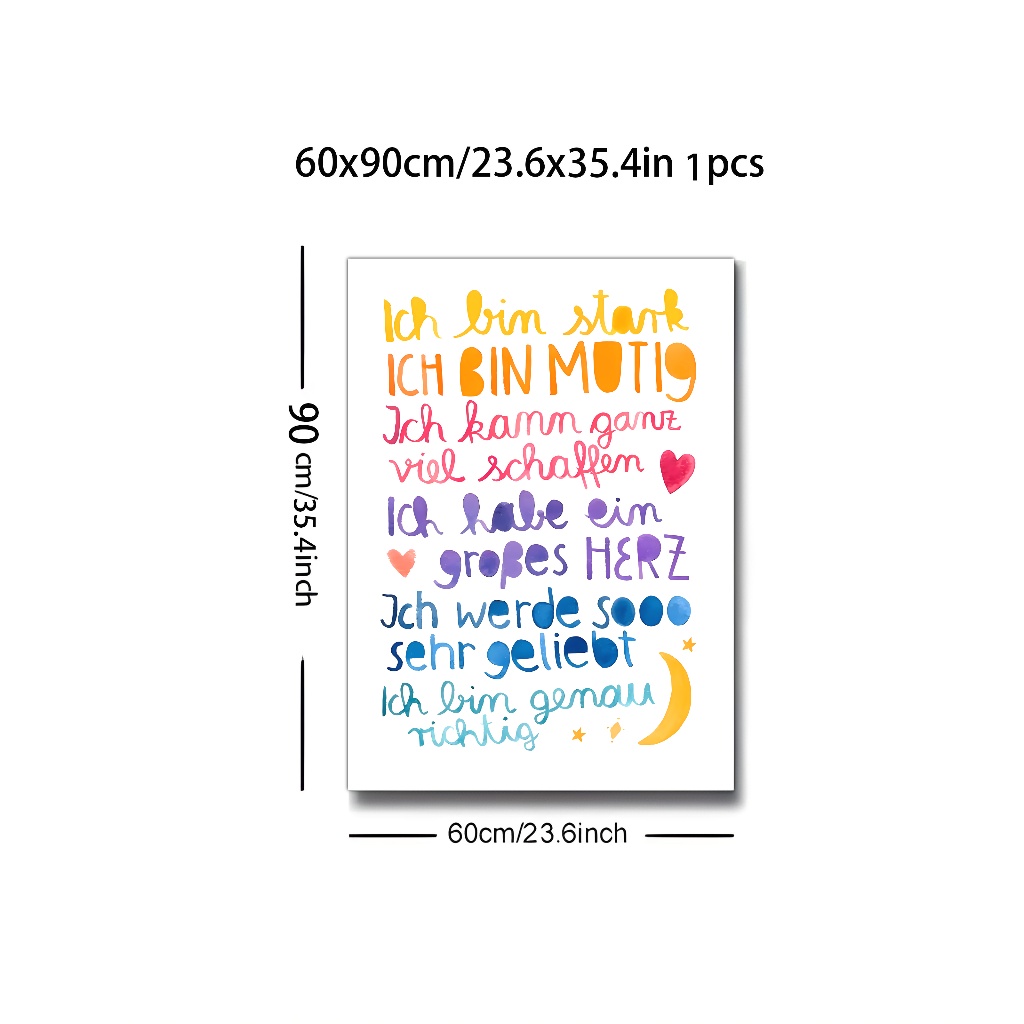 60x90cm/23.6x35.4in 1pcs
90 cm/35.4inch
Ich bin stark
ICH BIN MUTIg
Ich kann ganz
viel schaffen
Ich habe ein
großes HERZ
Ich werde sooo
sehr geliebt
Ich bin genau
richtig
60cm/23.6inch